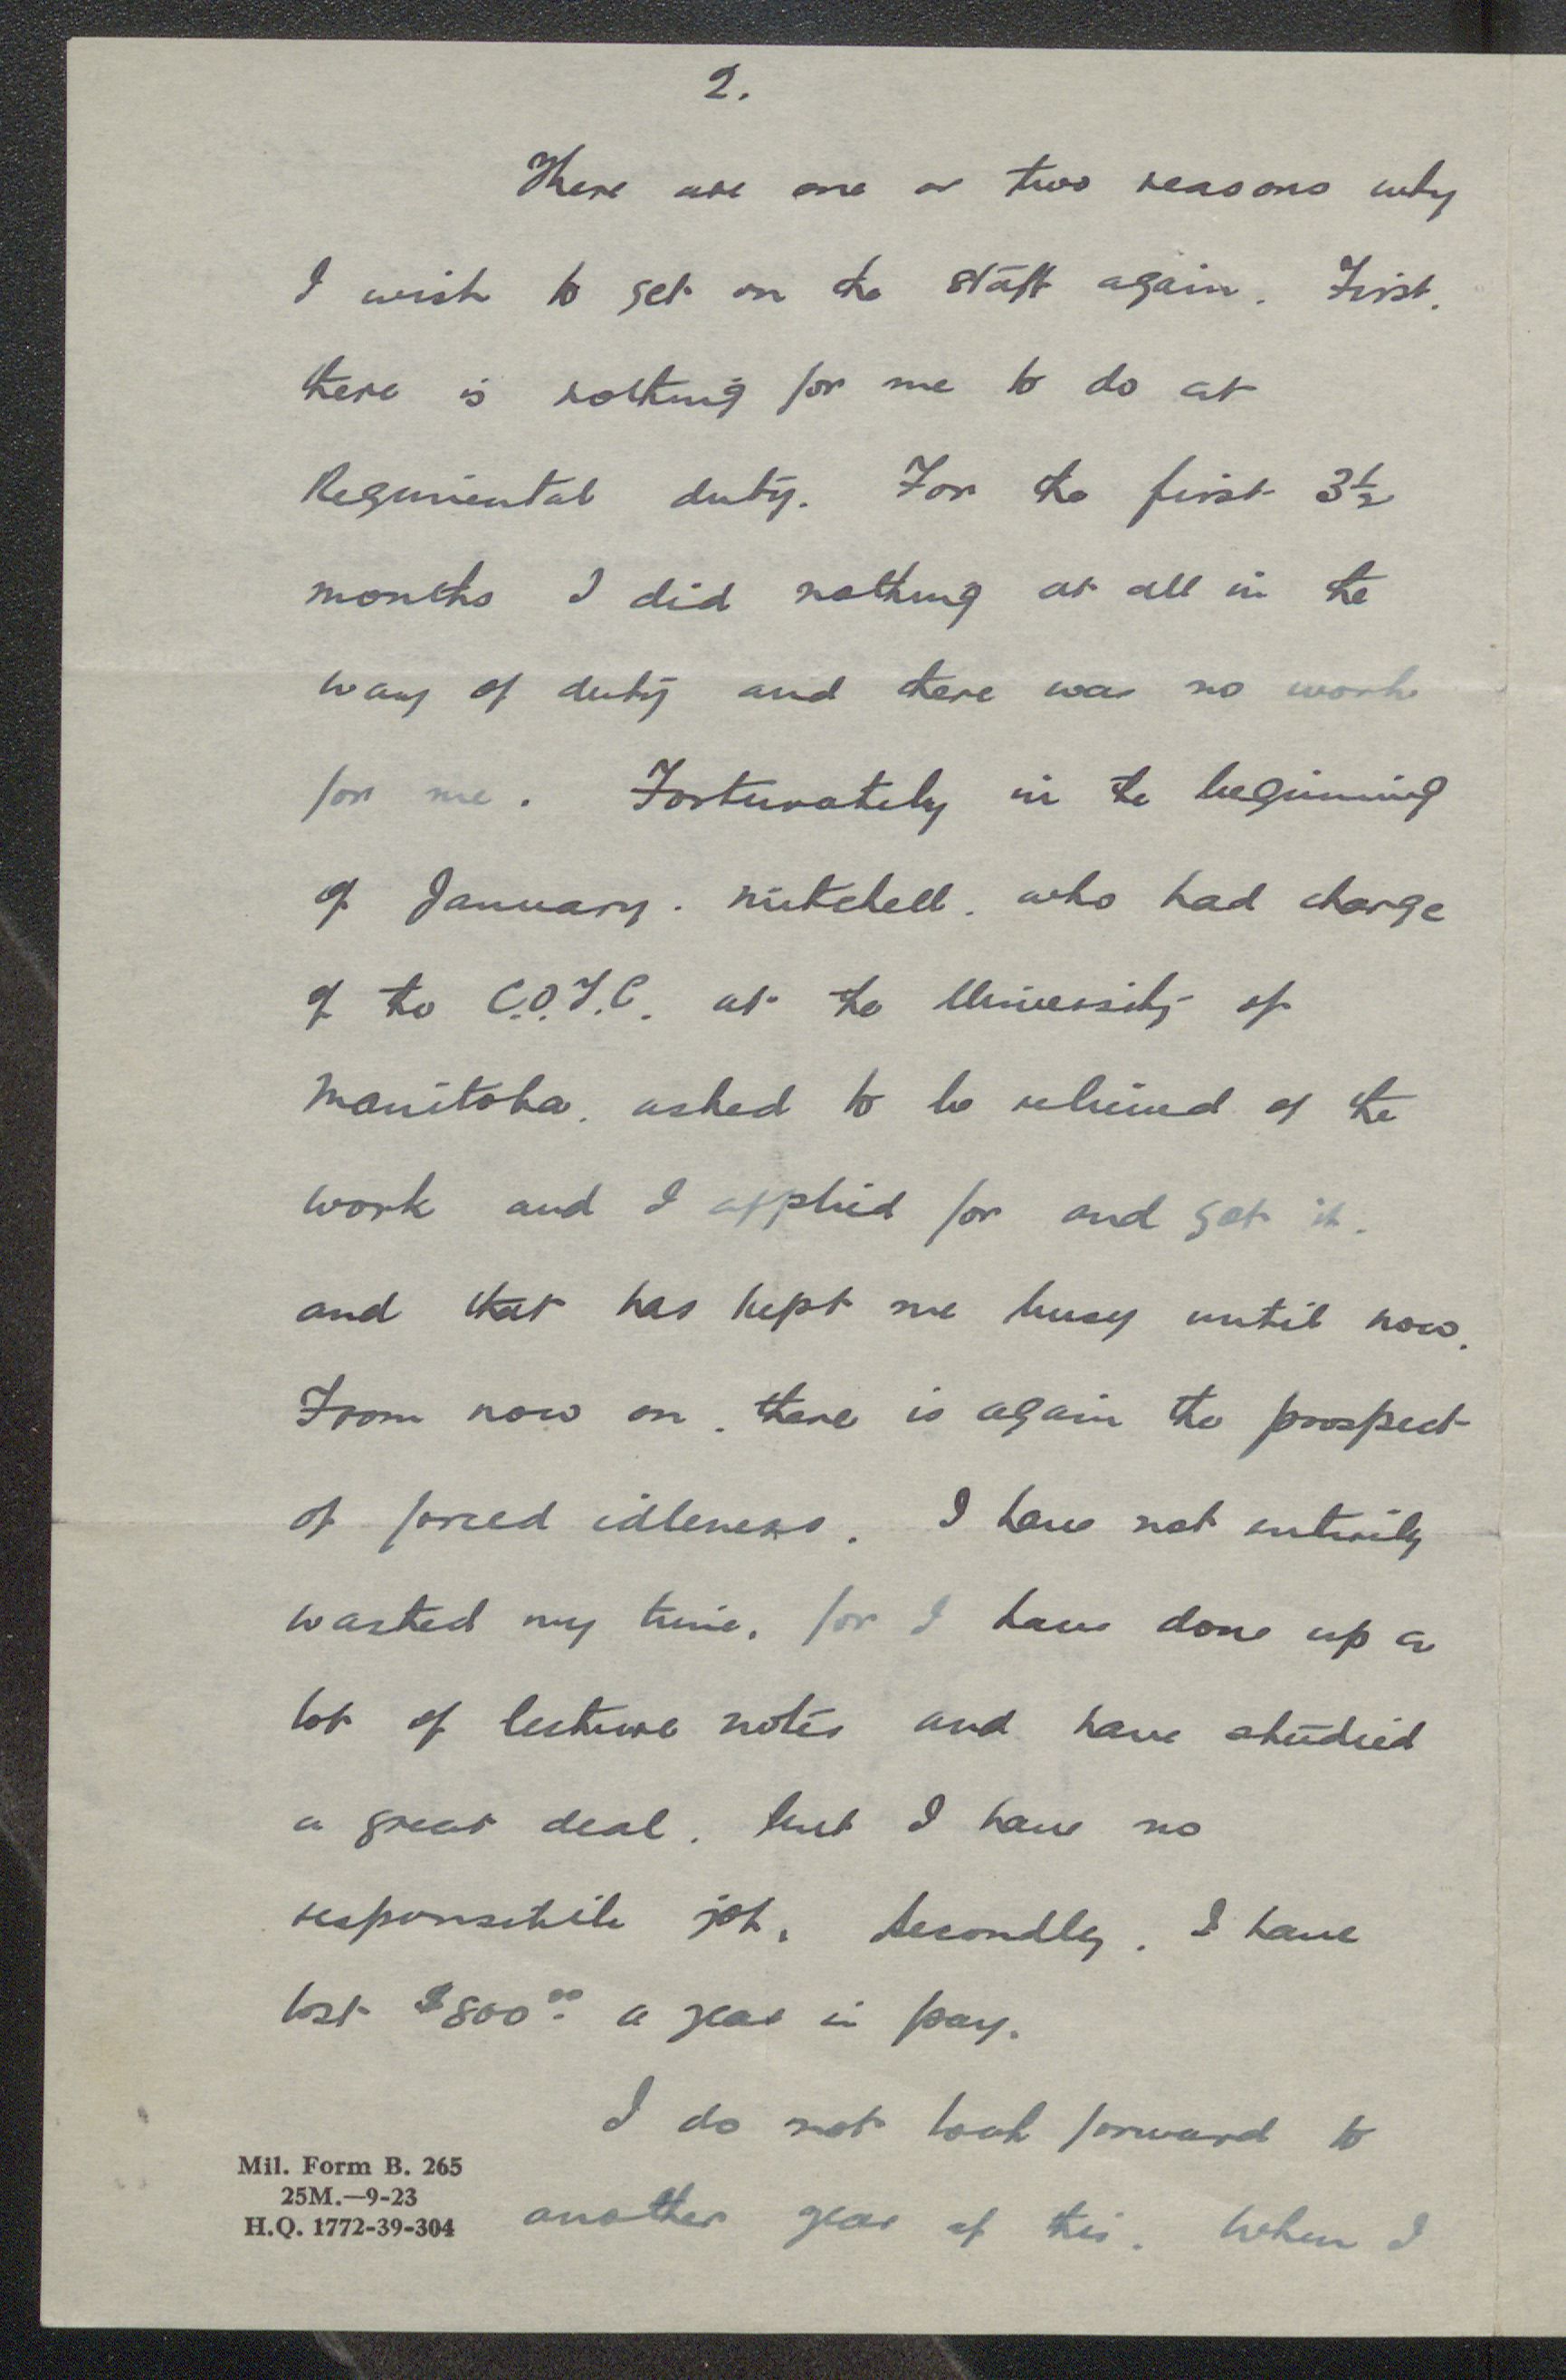 2.
There are one or two reasons why
I wish to get on the staff again. First.
there is nothing for me to do at
Regimental duty. For the first 3½
months I did nothing at all in the
way of duty and there was no work
for me. Fortunately in the beginning
of January. Mitchell. who had charge
of the C.O.T.C. at the University of
Manitoba. asked to be relieved of the
work and I applied for and got it.
and that has kept me busy until now.
From now on. there is again the prospect
of forced idleness. I have not entirely
wasted my time. for I have done up a
lot of lecture notes and have studied
a great deal. but I have no
responsible job. Secondly. I have
lost $800.00 a year in pay.
I do not look forward to
another year of this. When I
Mil. Form B. 265
25M.—9-23
H.Q. 1772-39-304